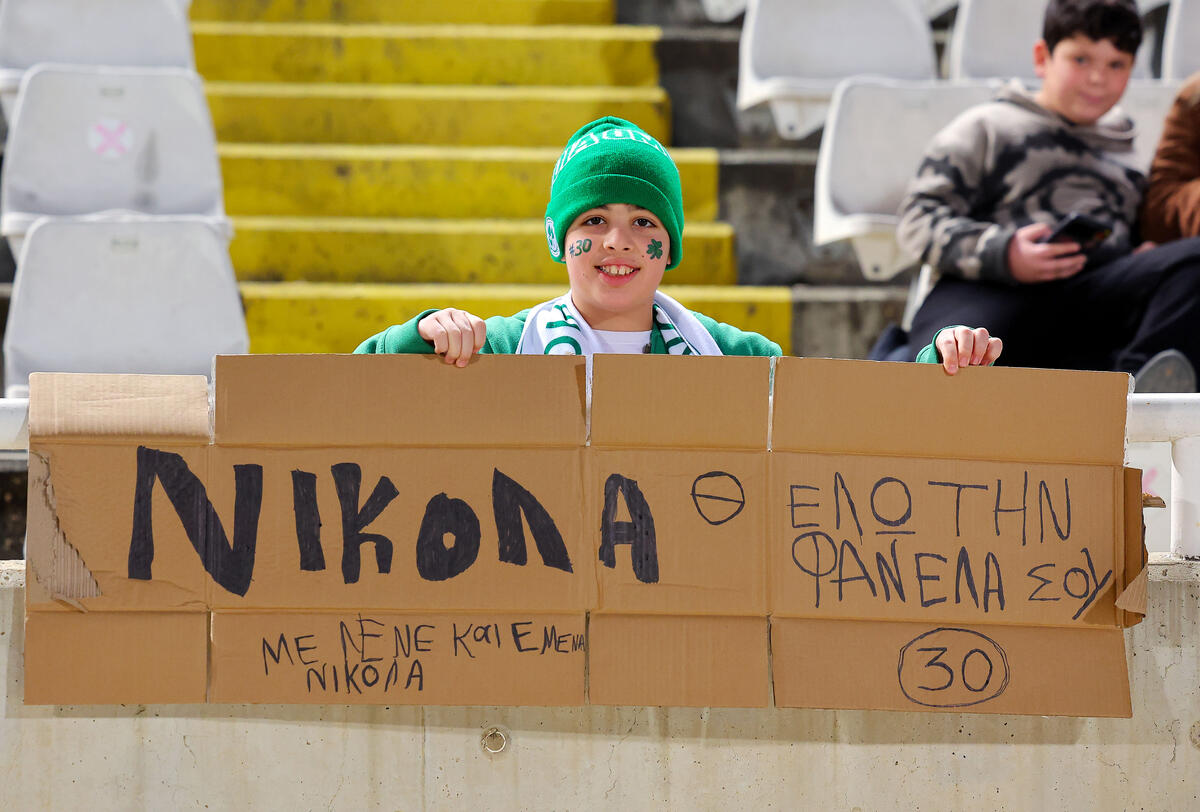 #30
ΝΙΚΟΛΑ Θ ΕΛΩ ΤΗΝ
ΦΑΝΕΛΑ ΣΟΥ
ΜΕ ΛΕΝΕ ΚΑΙ ΕΜΕΝΑ
ΝΙΚΟΛΑ
30